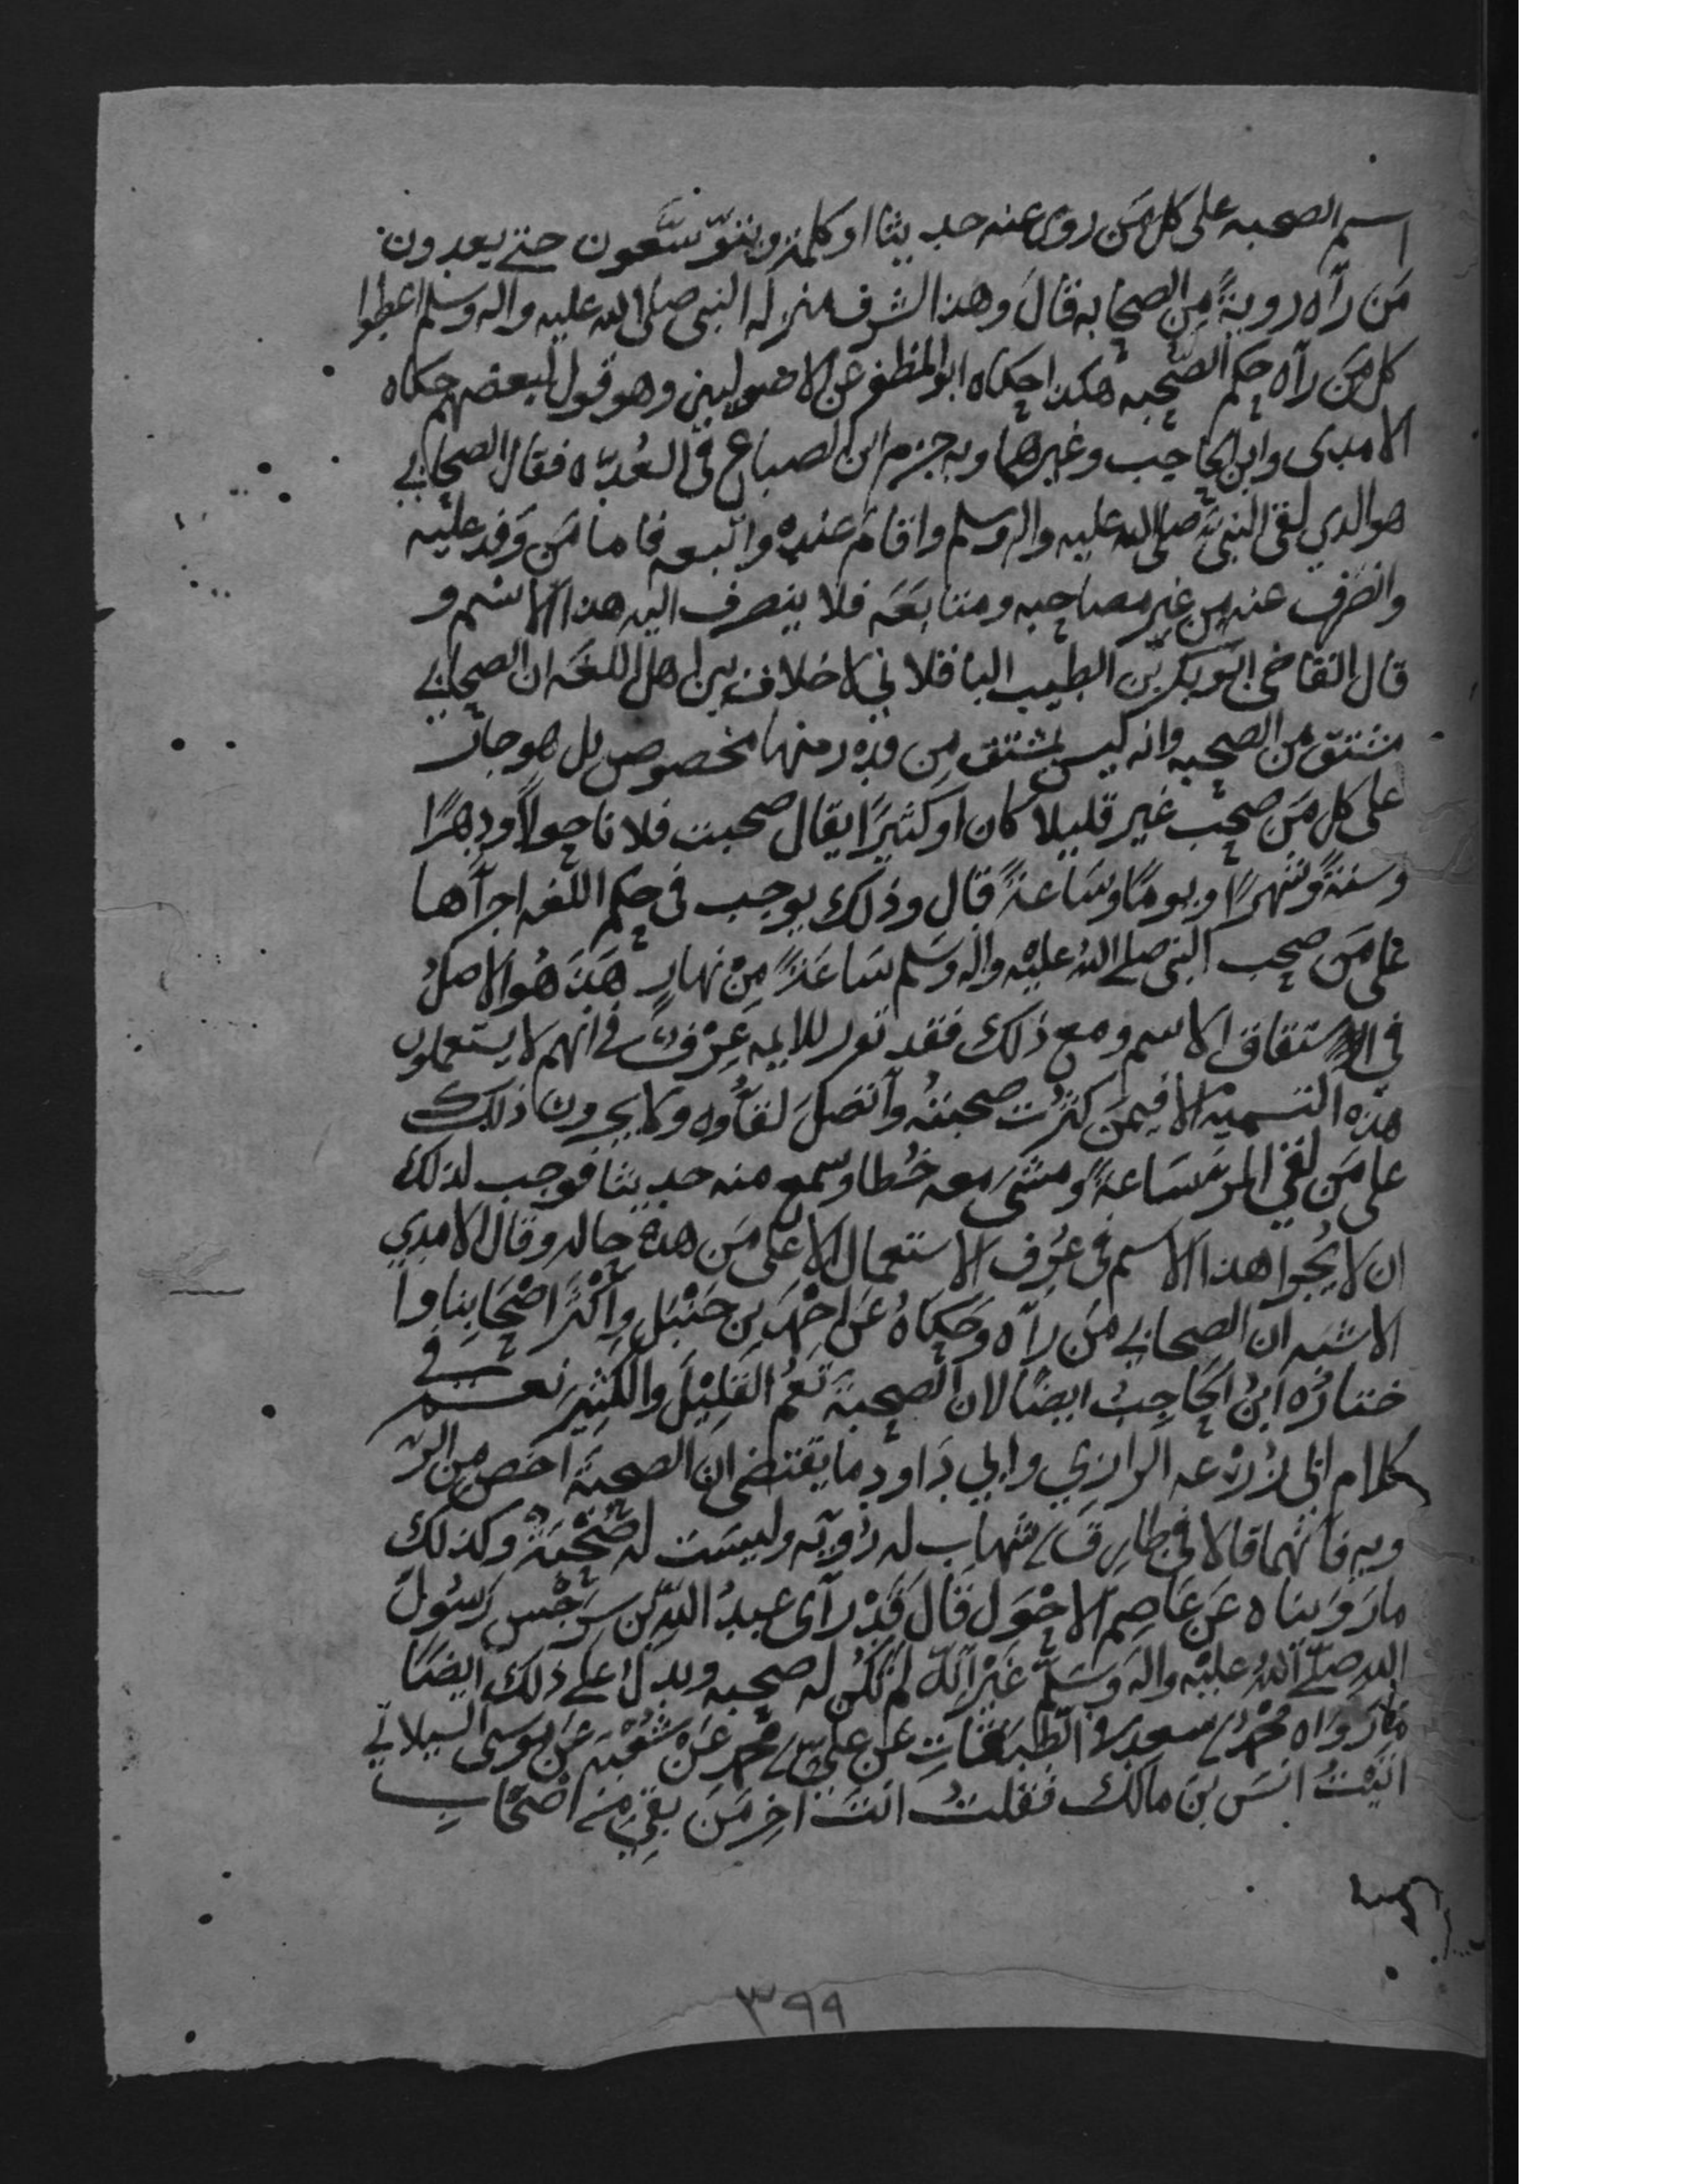 اسم الصحبه على كل مَن روى عنه حديثا او كلمة ويتوسَّعون حتى يعدون
مَن رآه روية مِن الصحابه قال وهذا الشرف منزله النبى صلى الله عليه واله وسلم اعطوا
كل مَن رآه حكم الصحبه هكذا حكاه ابو المظفر عن الاصوليين وهو قول لبعضهم حكاه
الامدى وابن الحاجب وغيرهما وبه جزم ابن الصباغ في العُدّه فقال الصحابي
هو الذي لقى النبيّ صلى الله عليه واله وسلم واقام عنده واتبعه فاما مَن وَفد عليه
وانصرف عنه من غير مصاحبه ومتابَعَه فلا ينصرف اليه هذا الاسم و
قال القاضى ابو بكر بن الطيب الباقلاني لا خلاف بين اهل اللغه ان الصحابي
مشتق من الصحبه وانه ليس بمشتق مِن قدر منها مخصوص بل هو جار
على كل مَن صحب غير قليلا كان او كثيرًا يقال صحبت فلانا حولاً ودهرًا
وسنةً وشهرًا ويومًا وسَاعةً قال وذلك يوجب في حكم اللغه اجرآها
على مَن صحب النبى صلى اللهُ عليْه واله وسَلم سَاعَةً مِنْ نهارٍ هَذَا هُو الاصلُ
في اشتقاق الاسم ومع ذلك فقد تقرر للايمه عُرْفٌ في انهم لا يستعملون
هذه التسمية الا فيمَن كثرُت صحبتهُ وآتصَلَ لقآوه ولا يجرون ذلك
على مَن لقي المرء سَاعةً ومشى معه خُطا وسمع منه حديثا فوجب لذلك
ان لا يُجرا هذا الاسم في عُرف الاستعمال الا على مَن هذه حاله وقال الامدي
الاشبه ان الصحابي مَن رآه وحَكاهُ عَن احْمَد بن حَنْبَلٍ واكْثَر اصْحَابِنا وا
ختارَهُ ابنُ الحَاجِبُ ايضًا لان الصحبةَ تعُمُّ القَلِيْلَ والكثِيرَ نعم في
كلام ابى زُرْعه الرازي وابي دَاود ما يقتضى ان الصحبَةَ اخصّ من الرؤ
ويه فانهما قالا فى طارق بن شهاب له رُؤيه وليسَت له صُحْبَةٌ وكذلك
مارَوَيناه عَن عَاصِم الاحْوَل قال قَدْ رآى عبدُ اللهِ بن سَرجْس رَسُولَ
اللهِ صَلّى اللهُ عليْه واله وسَلّم غَيْرَ انّه لم تكُن له صحبه ويدلّ على ذلك ايضًا
مَا رَوَاه محمد بن سعد فى الطبقات عَن علي بن محمد عَنْ شُعْبَة عَن موسى السيلاني
اتيْتُ انسَ بن مالك فقلتُ انتَ آخِر مَن بقي مِن اصْحَابِ
٣٩٩